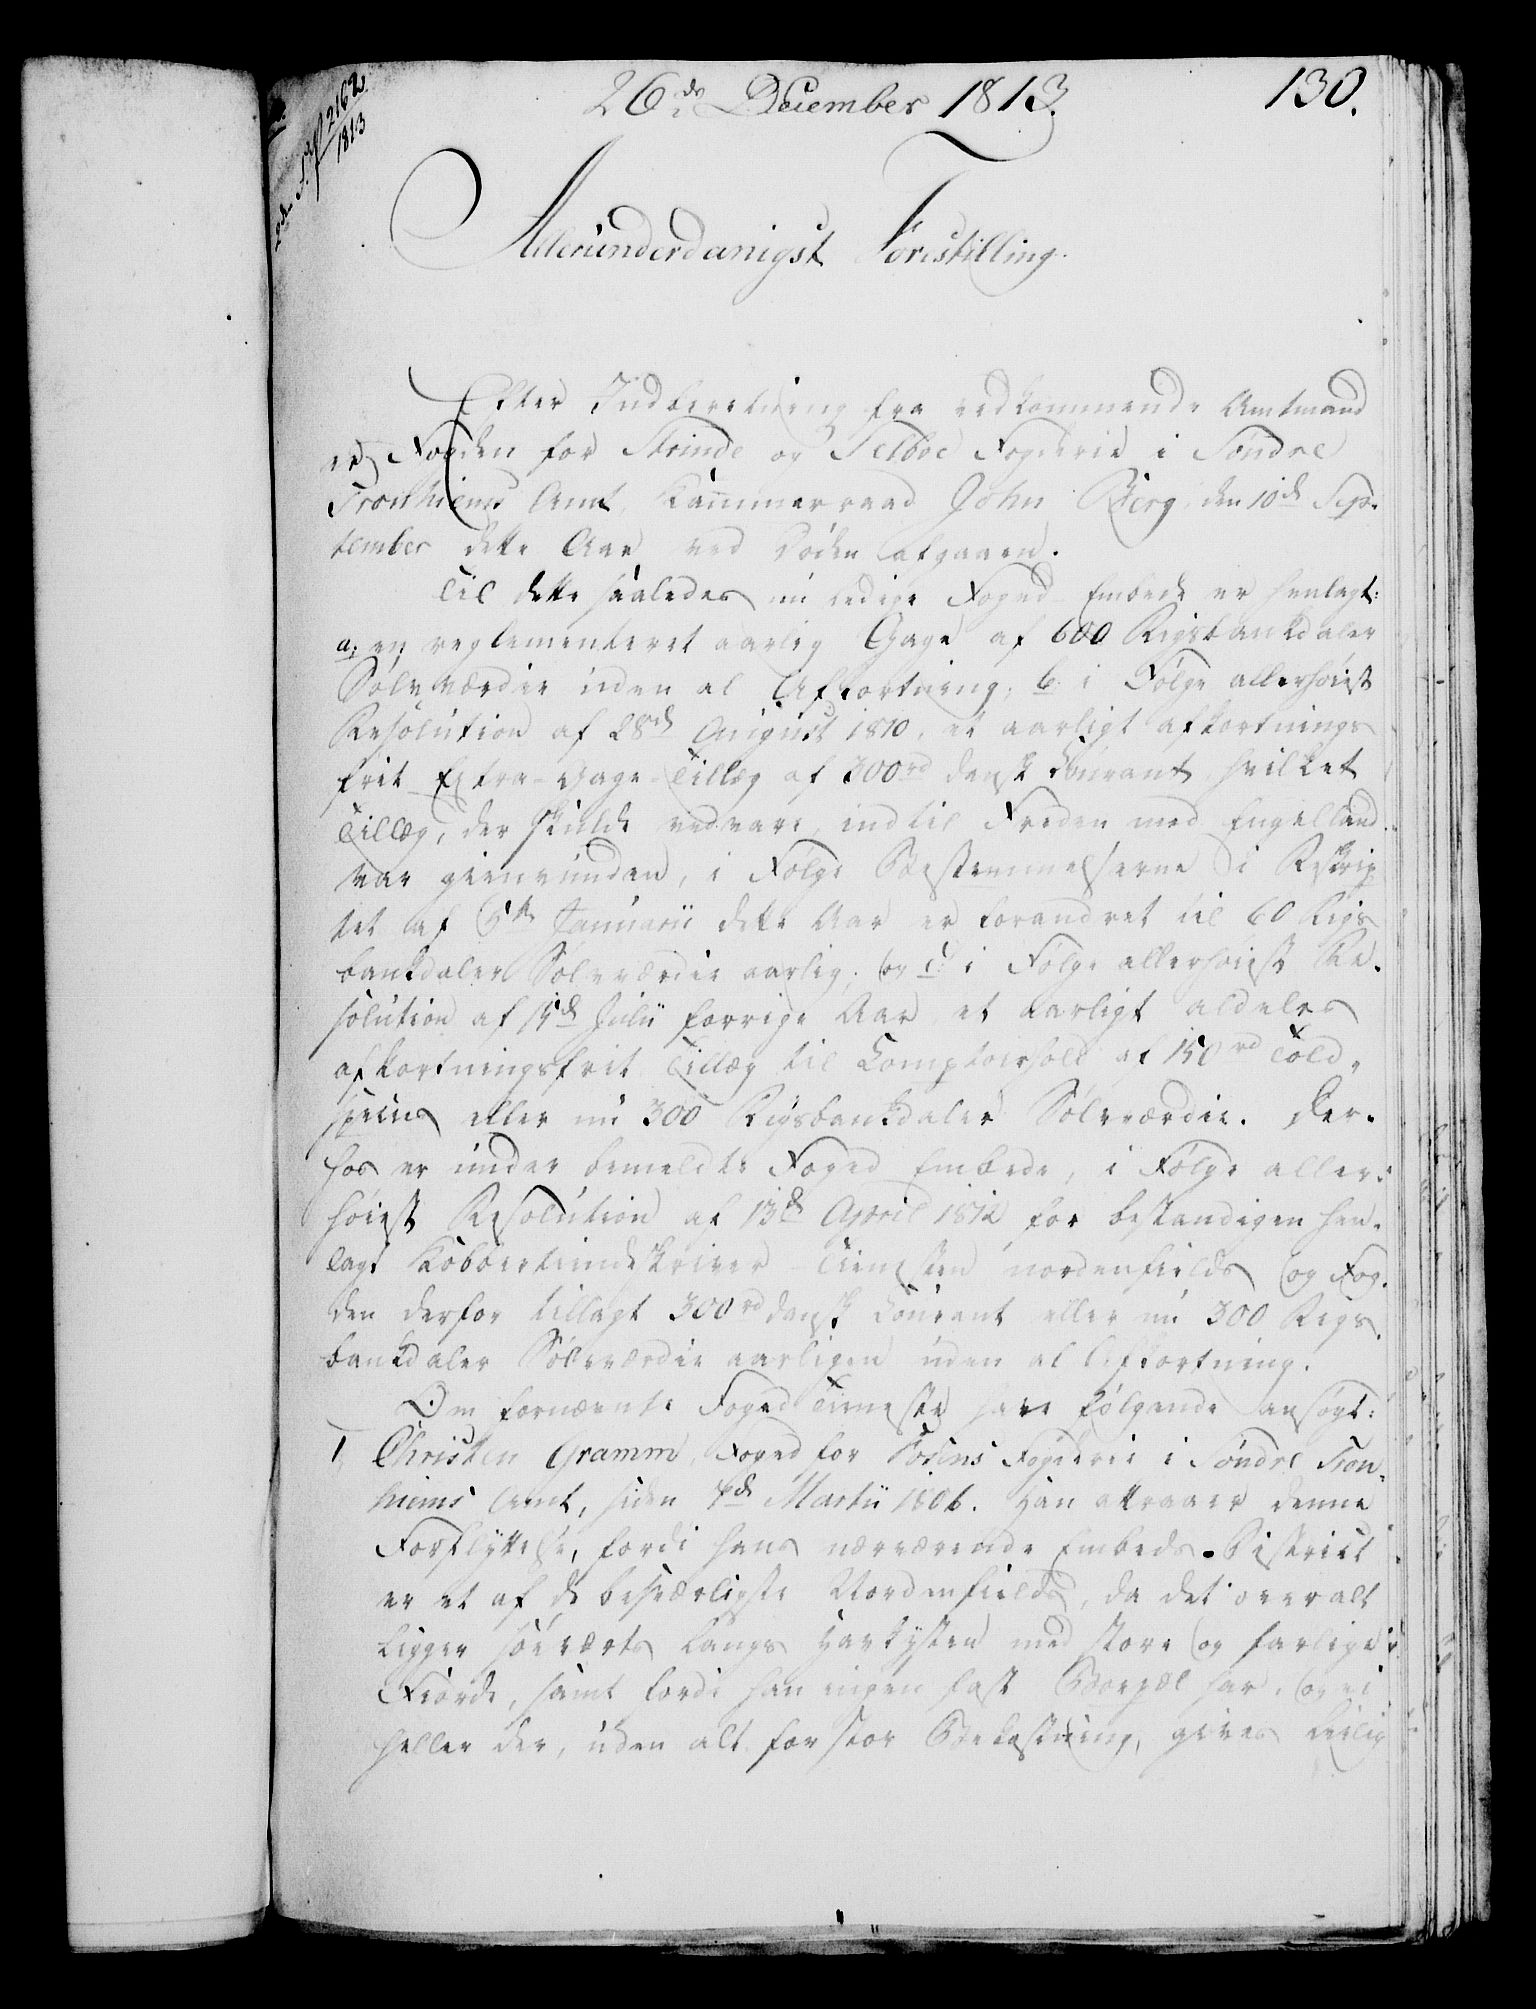 26de December 1813.
130.
2162
1813
Allerunderdanigst Forestilling.
Efter Indberetning fra vedkommende Amtmand
er Fogden for Strinde og Selboe Fogderie i Søndre
Tronhiems Amt, Kammerraad John Bierg, den 10d Sep-
tember dette Aar ved Døden afgaaen.
Til dette saaledes nu ledige Foged-Embede er henlagt:
a, en reglementeret aarlig Gage af 600 Rigsbankdaler
Sølvværdie uden al Afkortning, b, i Følge allerhøiest
Resolution af 28d August 1810, et aarligt afkortnings
frit Extra-Gage-Tillæg af 300rd dansk Courant, hvilket
Tillæg, der skulde vedvare, indtil Freden med Engelland
var gienvunden, i Følge Bestemmelserne i Rescrip
tet af 5te Januarii dette Aar er forandret til 60 Rigs
bankdaler Sølvværdie aarlig, og c, i Følge allerhøiest Re-
solution af 15d Julii forrige Aar et aarligt aldeles
afkortningsfrit Tillæg til Comptoirhold af 150rd Told-
specie eller nu 300 Rigsbankdaler Sølvværdie. Der-
hos er under bemeldte Foged Embede, i Følge aller-
høiest Resolution af 13d April 1812 for bestandigen hen-
lagt Kobbertiendeskriver-Tienesten nordenfields og Fog-
den derfor tillagt 300rd dansk Courant eller nu 300 Rigs-
bankdaler Sølvværdie aarligen uden al Afkortning.
Om fornævnte Foged Tieneste have følgende ansøgt:
1, Christen Gramm, Foged for Fosens Fogderie i Søndre Tron-
hiems Amt, siden 7d Martii 1806. Han attraaer denne
Forflyttelse, fordi hans nærværende Embeds-District
er et af de besværligste Nordenfields, da det overalt
ligger søeværts langs Havkysten med store og farlige
Fiorde, samt fordi han ingen fast Boepæl har, og ei
heller der, uden alt for stor Bekostning, gives Leilig